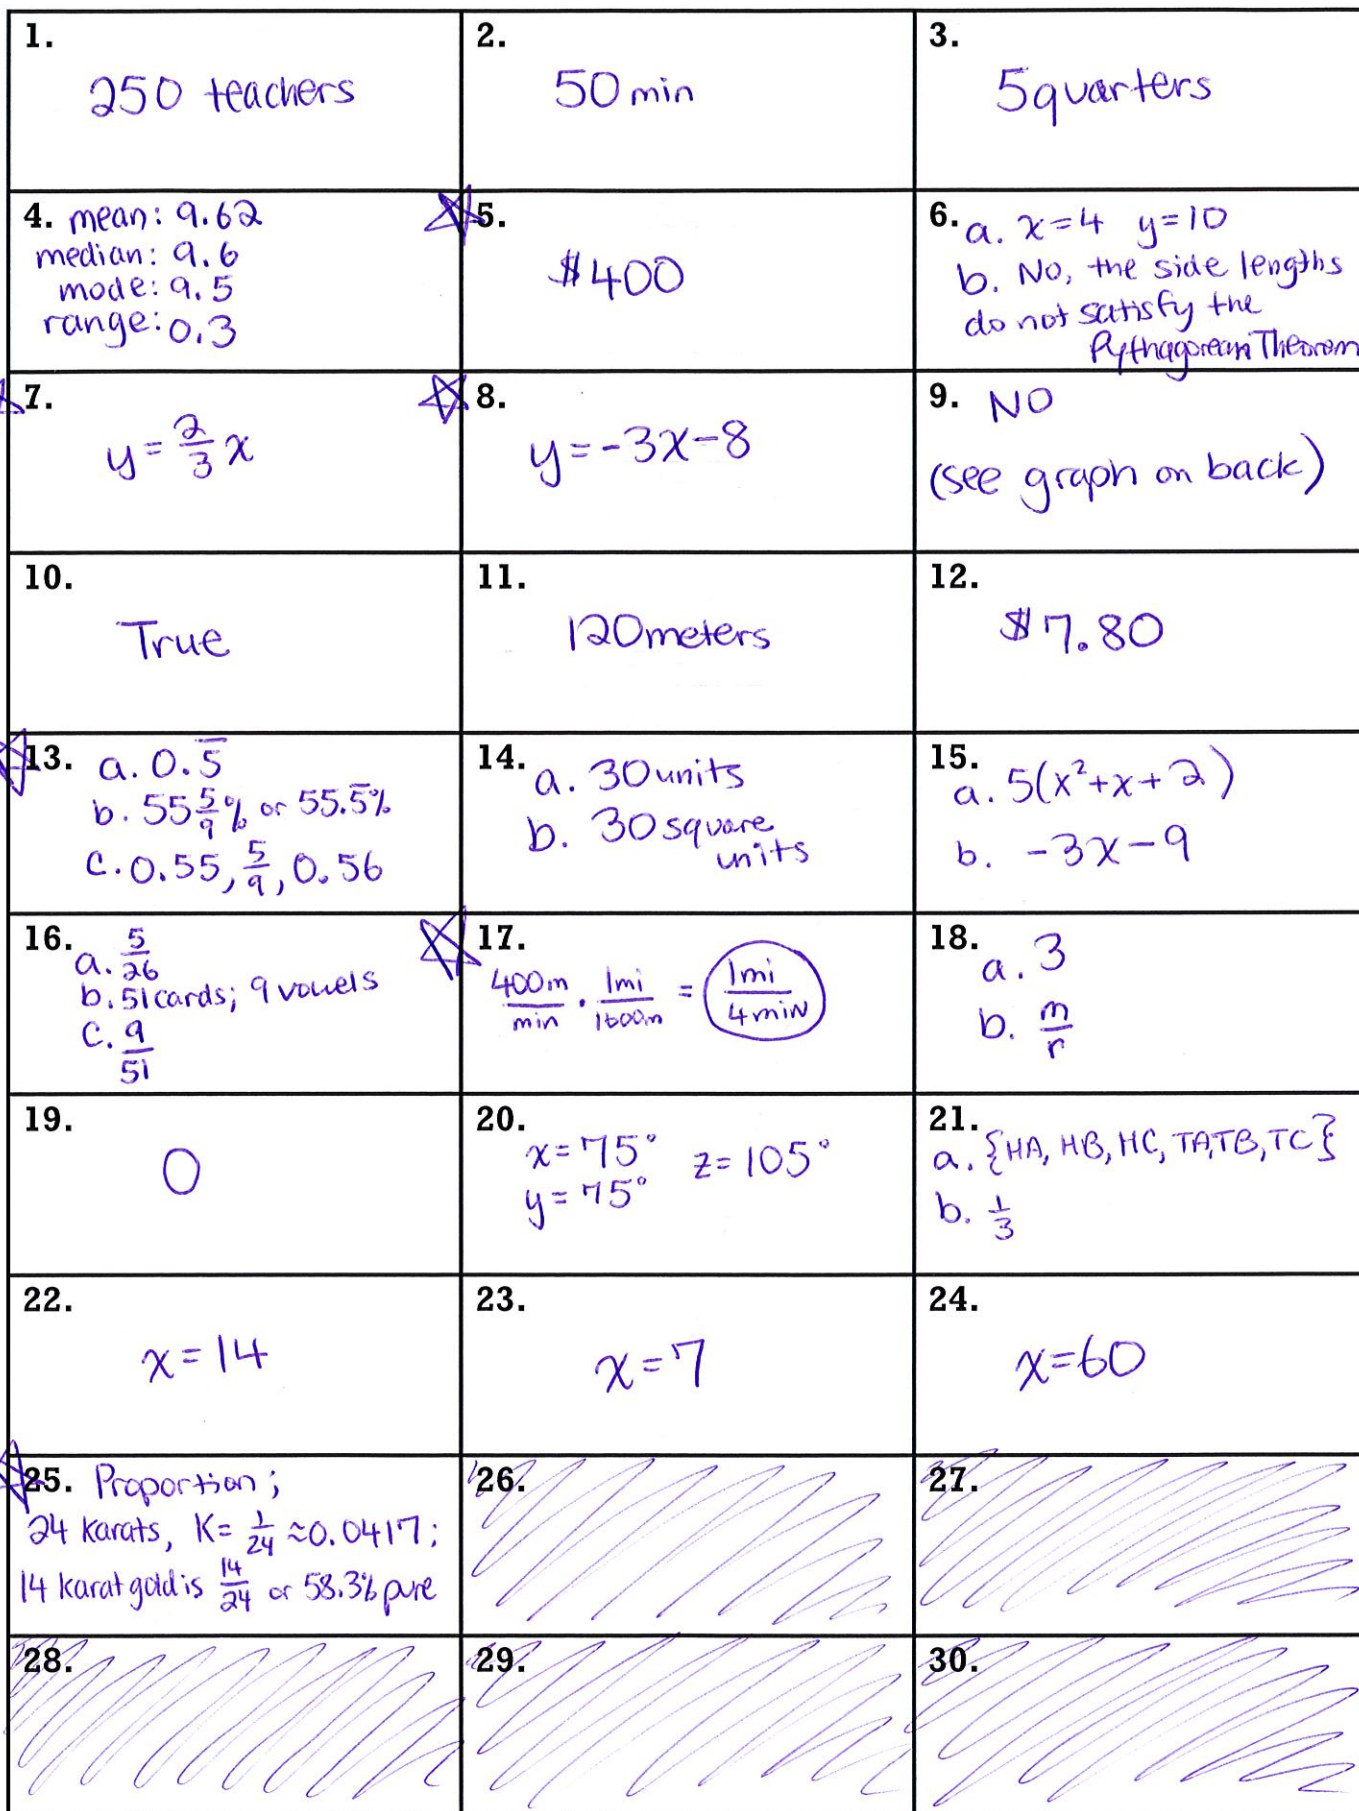 1.
250 teachers
2.
50 min
3.
5 quarters
4. mean: 9.62
median: 9.6
mode: 9.5
range: 0.3
5.
$400
6. a. x=4 y=10
b. No, the side lengths
do not satisfy the
Pythagorean Theorem
7.
y = 2/3 x
8.
y = -3x-8
9. NO
(see graph on back)
10.
True
11.
120 meters
12.
$7.80
13. a. 0.5̅
b. 55 5/9 % or 55.5̅%
c. 0.55, 5/9, 0.56
14. a. 30 units
b. 30 square
units
15.
a. 5(x²+x+2)
b. -3x-9
16.
a. 5/26
b. 51 cards; 9 vowels
c. 9/51
17.
400m/min · 1mi/1600m = 1mi/4min
18.
a. 3
b. m/r
19.
0
20.
x = 75° z = 105°
y = 75°
21.
a. {HA, HB, HC, TA, TB, TC}
b. 1/3
22.
x = 14
23.
x = 7
24.
x = 60
25. Proportion;
24 karats, K = 1/24 ≈ 0.0417;
14 karat gold is 14/24 or 58.3% pure
26.
27.
28.
29.
30.